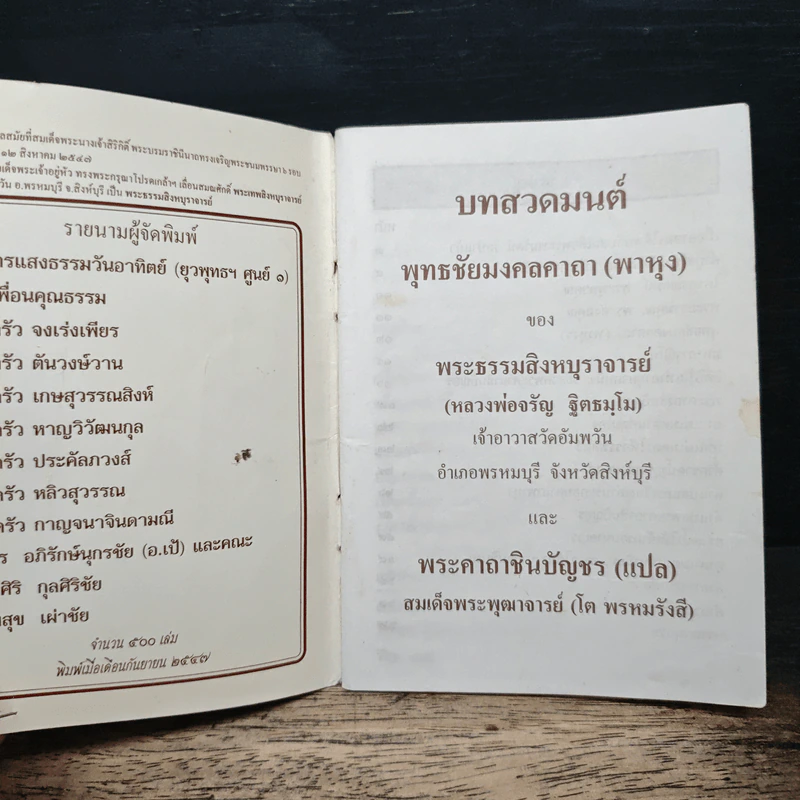 ลสมัยที่สมเด็จพระนางเจ้าสิริกิติ์ พระบรมราชินีนาถทรงเจริญพระชนมพรรษา ๖ รอบ
๑๒ สิงหาคม ๒๕๔๗
ด็จพระเจ้าอยู่หัว ทรงพระกรุณาโปรดเกล้าฯ เลื่อนสมณศักดิ์ พระเทพสิงหบุราจารย์
วัน อ.พรหมบุรี จ.สิงห์บุรี เป็น พระธรรมสิงหบุราจารย์
รายนามผู้จัดพิมพ์
ารแสงธรรมวันอาทิตย์ (ยุวพุทธฯ ศูนย์ ๑)
พื่อนคุณธรรม
รัว จงเร่งเพียร
รัว ตันวงษ์วาน
รัว เกษสุวรรณสิงห์
รัว หาญวิวัฒนกุล
รัว ประคัลภวงส์
รัว หลิวสุวรรณ
รัว กาญจนาจินดามณี
ร อภิรักษ์นุกรชัย (อ.เป้) และคณะ
ศิริ กุลศิริชัย
สุข เผ่าชัย
จำนวน ๕๐๐ เล่ม
พิมพ์เมื่อเดือนกันยายน ๒๕๔๗
บทสวดมนต์
พุทธชัยมงคลคาถา (พาหุง)
ของ
พระธรรมสิงหบุราจารย์
(หลวงพ่อจรัญ ฐิตธมฺโม)
เจ้าอาวาสวัดอัมพวัน
อำเภอพรหมบุรี จังหวัดสิงห์บุรี
และ
พระคาถาชินบัญชร (แปล)
สมเด็จพระพุฒาจารย์ (โต พรหมรังสี)